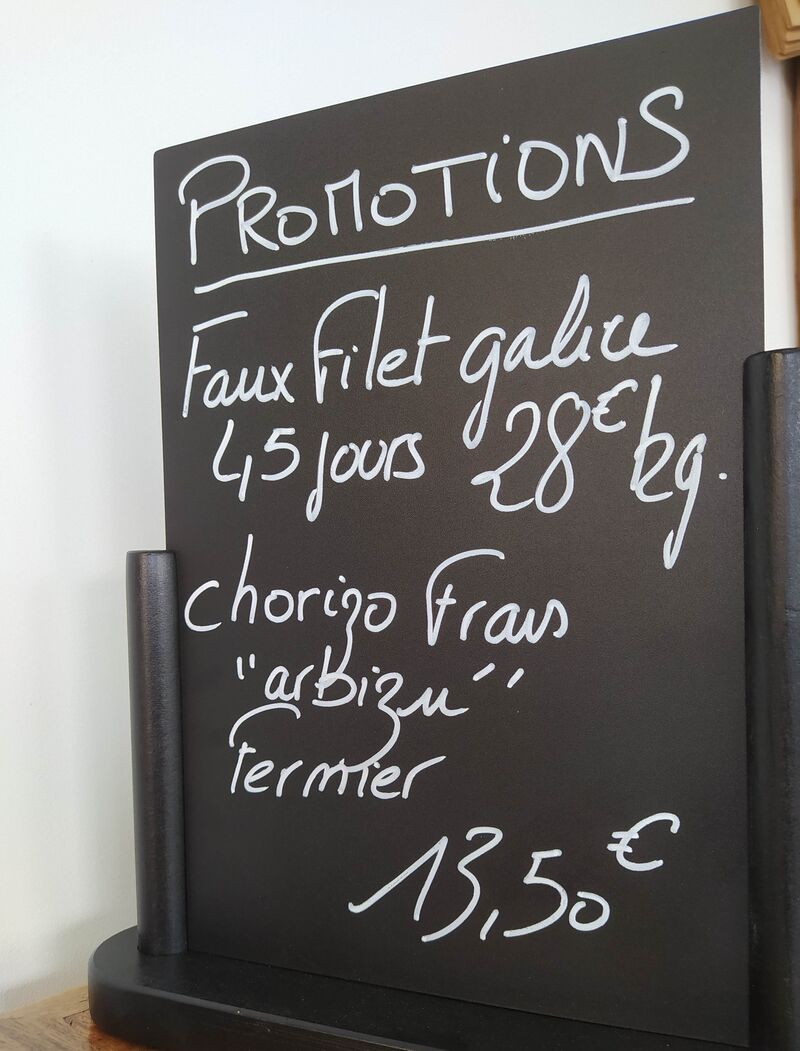 PROMOTIONS
Faux Filet galice
45 jours 28€ kg.
chorizo Frais
"arbizu"
Fermier
13,50€